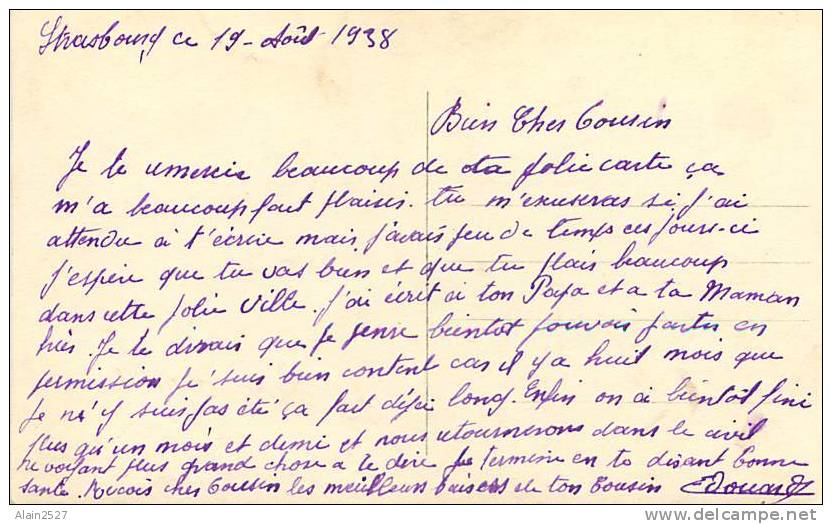 Strasbourg ce 19 - Août 1938
Bien Cher Cousin
Je te remercie beaucoup de ta jolie carte ça
m'a beaucoup fait plaisir. tu m'excuseras si j'ai
attendu à t'écrire mais j'avais peu de temps ces jours-ci
j'espère que tu vas bien et que tu plais beaucoup
dans cette jolie ville. J'ai écrit à ton Papa et a ta Maman
hier. Je te dirais que je pense bientôt pouvoir partir en
permission je suis bien content car il y a huit mois que
je n'y suis pas été ça fait déjà long. Enfin on a bientôt fini
plus qu'un mois et demi et nous retournerons dans le civil
ne voyant plus grand chose a te dire je termine en te disant bonne
santé. Recois cher Cousin les meilleurs baisers de ton Cousin Edouard
Alain2527
delcampe.net